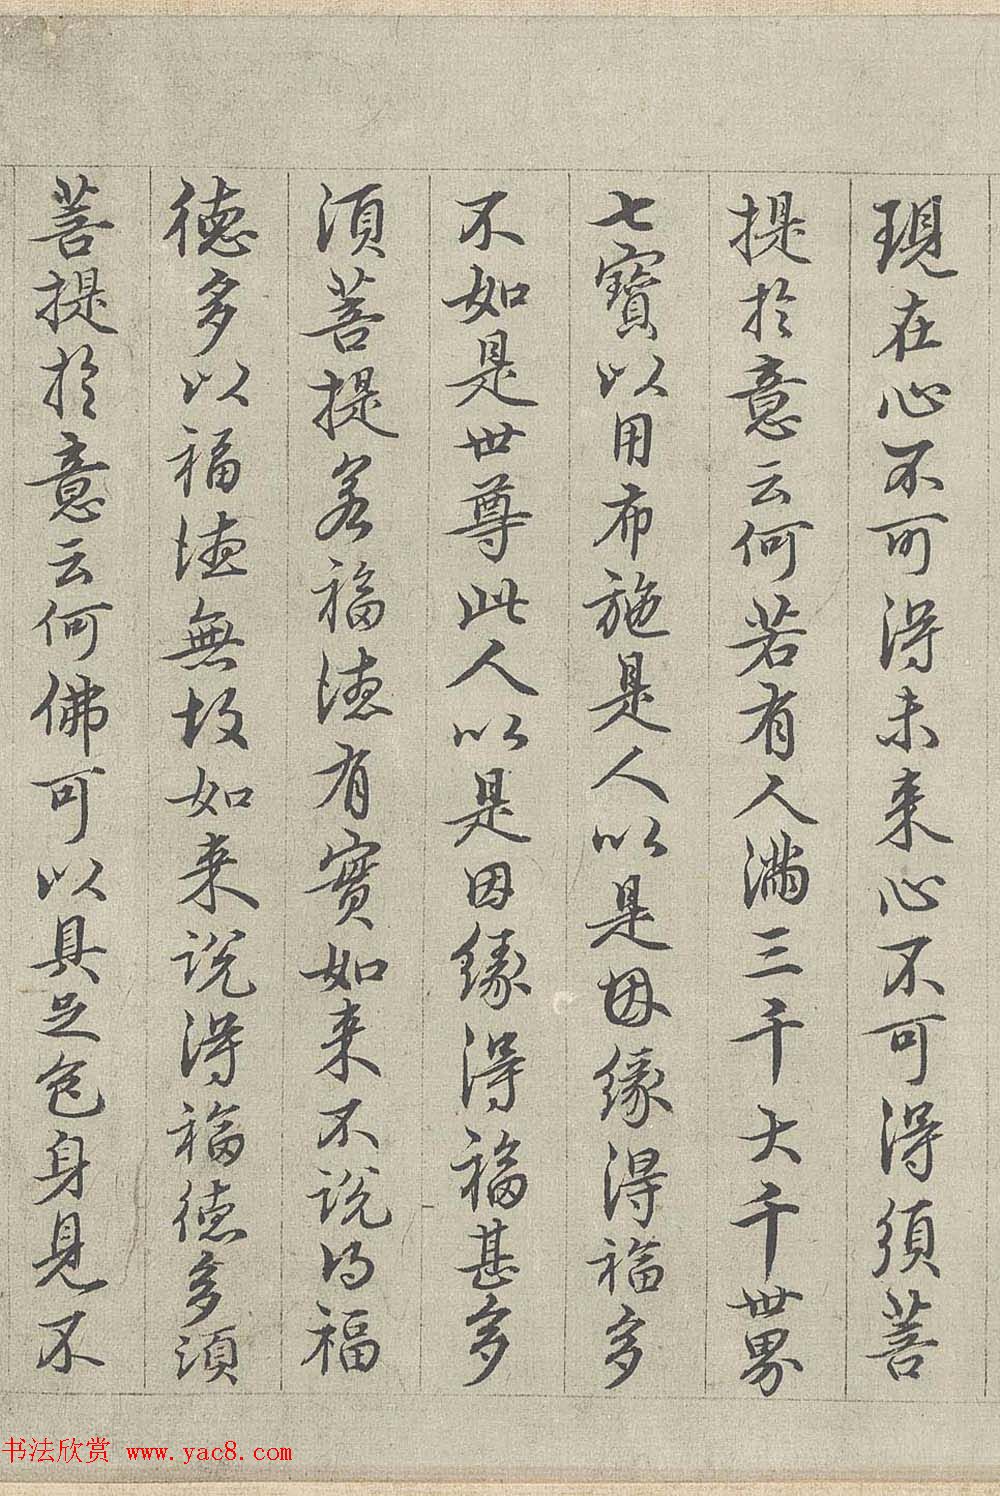 現在心不可得未来心不可得須菩
提於意云何若有人滿三千大千世界
七寶以用布施是人以是因緣得福多
不如是世尊此人以是因緣得福甚多
須菩提若福德有實如来不說得福
德多以福德無故如来說得福德多須
菩提於意云何佛可以具足色身見不
书法欣赏 www.yac8.com